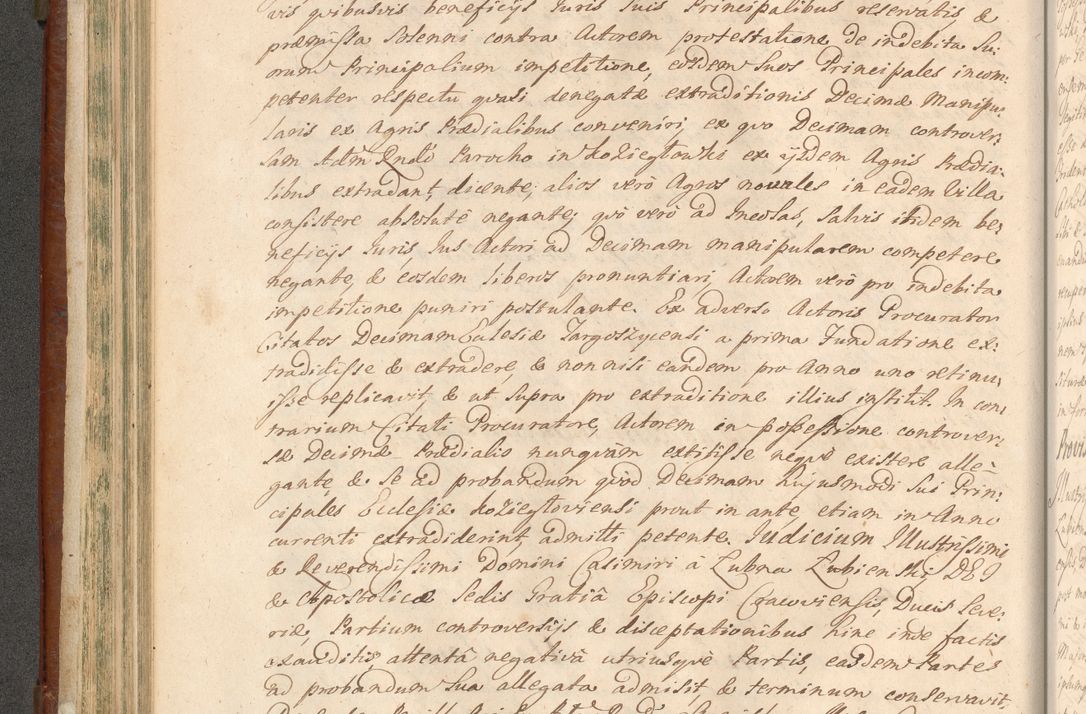 vis quibusvis beneficijs Iuris Suis Principalibus reservatis &
præmissa Solenni contra Actorem protestatione de indebita Su:
orum Principalium impetitione, eosdem Suos Principales incom:
petenter respectu quasi denegatæ extraditionis Decimæ Manipu:
laris ex Agris Prædialibus conveniri, ex quo Decimam controver:
sam Adm Rndo Parocho in Koziegłowki ex ijsdem Agris Prædia:
libus extradant, dicente; alios verò Agros novales in eadem Villa
consistere absolutè negante; quò verò ad Incolas, Salvis itidem be:
neficijs Iuris, Ius Actori ad Decimam manipularem competere
negante, & eosdem liberos pronuntiari, Actorem verò pro indebita
impetitione puniri postulante. Ex adverso Actoris Procurator
Citatos Decimam Eclesiæ Targoszycensi a prima Fundatione ex:
tradidisse & extradere, & non nisi eandem pro Anno uno retinu:
isse replicavit, & ut Supra pro extraditione illius institit. In con:
trarium Citati Procuratore, Actorem in possessione controver:
sæ Decimæ Prædialis nunquàm extitisse neque existere alle:
gante, & Se ad probandum quòd Decimam hujusmodi Sui Prin:
cipales Ecclesiæ Koziegłoviensi prout in ante, etiam in Anno
currenti extradiderint, admitti petente. Iudicium Illustrissimi
& Reverendissimi Domini Casimiri à Łubna Łubienski DEI
& Apostolicæ Sedis Gratiâ Episcopi Cracoviensis, Ducis Seve:
riæ, Partium controversijs & disceptationibus hinc inde factis
exauditis, attentâ negativâ utriusquè Partis, easdem Partes
ad probandum Sua allegata admisit, & terminum conservavit,